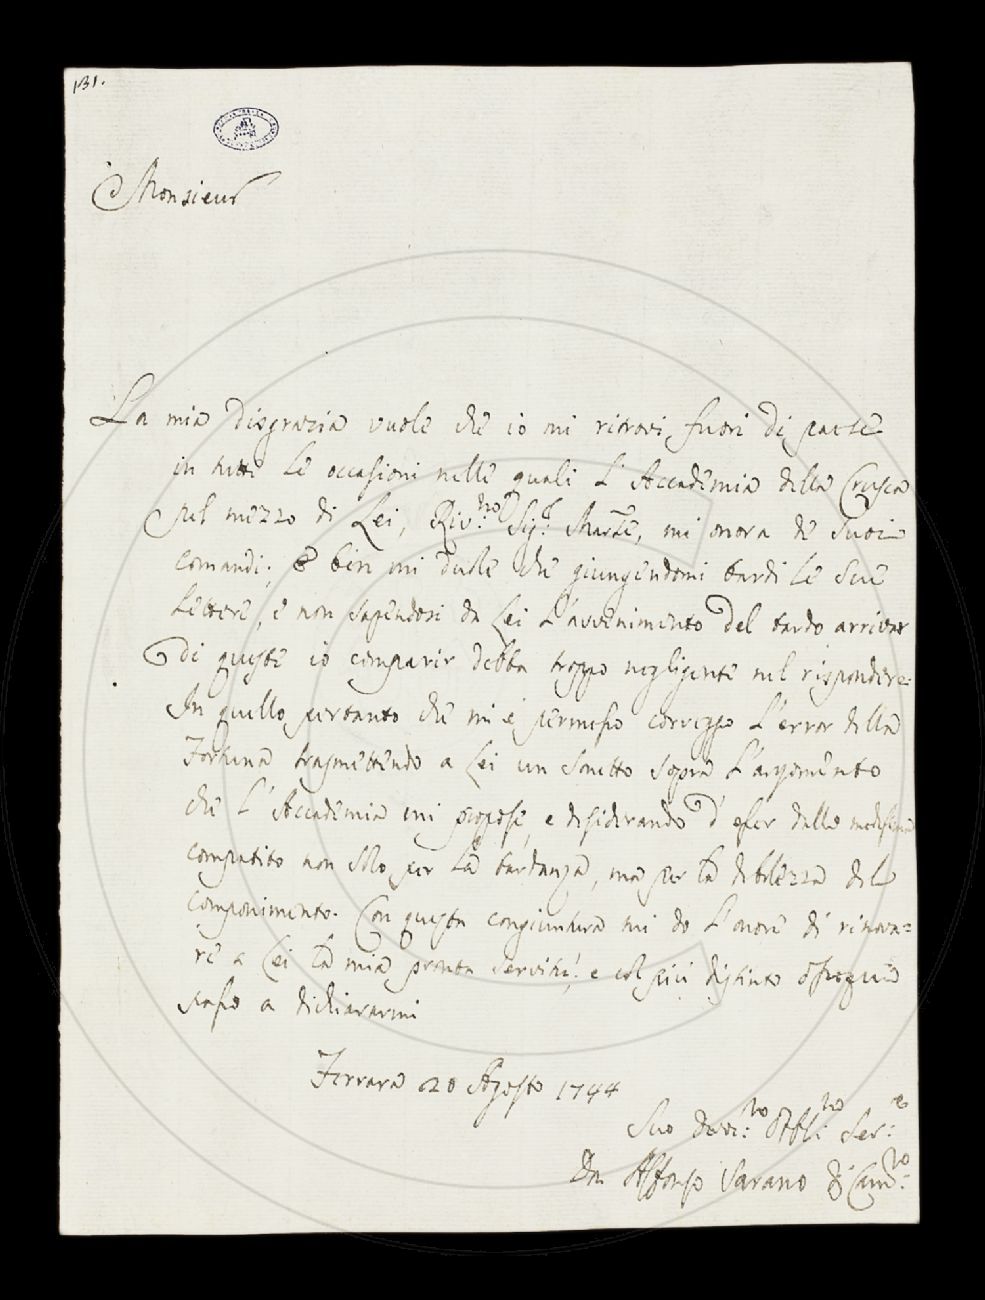 131.
Monsieur
La mia disgrazia vuole che io mi ritrovi fuori di paese
in tutte le occasioni nelle quali l'Accademia della Crusca
pel mezzo di Lei, Riv:mo Sig:r Mar:se, mi onora de' suoi
comandi; e ben mi duole che giungendomi tardi le sue
Lettere, e non sapendosi da Lei l'avvenimento del tardo arrivar
di queste io comparir debba troppo negligente nel rispondere.
In quello pertanto che mi è permesso correggo l'error della
Fortuna trasmettendo a Lei un sonetto sopra l'argomento
che l'Accademia mi propose, e desiderando d'esser dalla medesima
compatito non solo per la tardanza, ma per la debolezza del
componimento. Con questa congiuntura mi do l'onore di rinova=
re a Lei la mia pronta servitù; e col più distinto ossequio
passo a dichiararmi
Ferrara 20 Agosto 1744
Suo Devo:mo Obbl:mo Ser:e
Dn Alfonso Varano di Cam:no